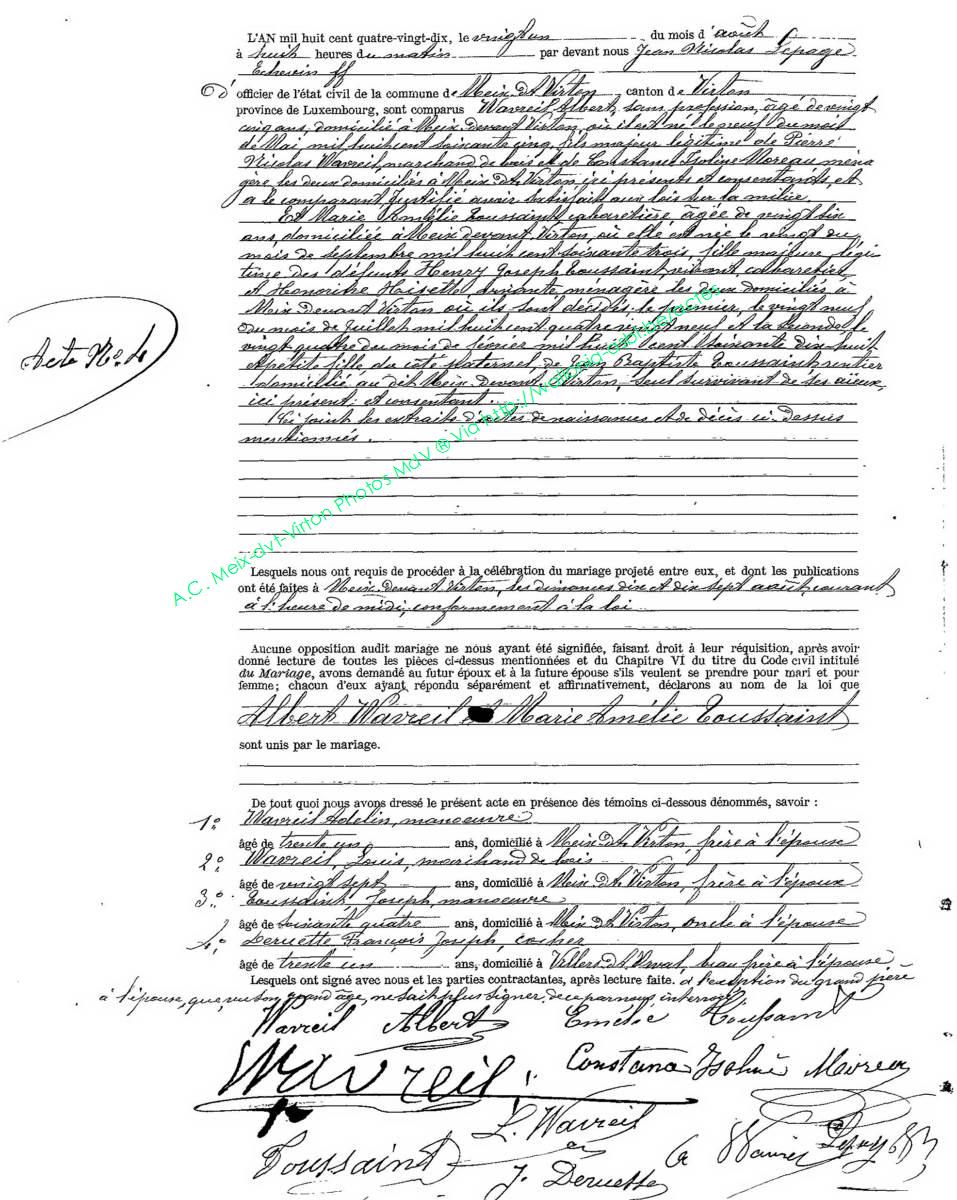 L'AN mil huit cent quatre-vingt-dix, le vingt un du mois d'août
à huit heures du matin par devant nous Jean Nicolas Lepage
Echevin ff
d' officier de l'état civil de la commune de Meix-dt-Virton, canton de Virton
province de Luxembourg, sont comparus Wavreil Albert, sans profession, âgé de vingt
cinq ans, domicilié à Meix-Devant-Virton, où il est né le neuf du mois
de Mai mil huit cent soixante cinq, fils majeur légitime de Pierre
Nicolas Wavreil, marchand de bois et de Constance Isoline Moreau ména
gère, les deux domiciliés à Meix-dt-Virton, ici présents et consentants, et
a le comparant justifié avoir satisfait aux lois sur la milice.
Et Marie Amélie Toussaint cabaretière, âgée de vingt six
ans, domiciliée à Meix devant Virton, où elle est née le vingt du
mois de septembre mil huit cent soixante trois, fille majeure légi
time des défunts Henry Joseph Toussaint, vivant cabaretier
et Honorine vivante ménagère les deux domiciliés à
Meix Devant Virton où ils sont décédés le premier, le vingt neuf
du mois de Juillet mil huit cent quatre vingt neuf et la seconde, le
vingt quatre du mois de février mil huit cent soixante dix huit
et petite fille du côté paternel, de Jean Baptiste Toussaint, rentier
domicilié au dit Meix-Devant-Virton, seul survivant de ses aïeux,
ici présent et consentant.
Ci joint les extraits d'actes de naissances et de décès ci-dessus
mentionnés.
Acte No. 4
A.C. Meix-dvt-Virton Photos MdV ® Via http://wetonia-asbl.be/actes
Lesquels nous ont requis de procéder à la célébration du mariage projeté entre eux, et dont les publications
ont été faites à Meix-Devant-Virton, les dimanches dix et dix sept août courant
à l'heure de midi, conformément à la loi
Aucune opposition audit mariage ne nous ayant été signifiée, faisant droit à leur réquisition, après avoir
donné lecture de toutes les pièces ci-dessus mentionnées et du Chapitre VI du titre du Code civil intitulé
du Mariage, avons demandé au futur époux et à la future épouse s'ils veulent se prendre pour mari et pour
femme; chacun d'eux ayant répondu séparément et affirmativement, déclarons au nom de la loi que
Albert Wavreil et Marie Amélie Toussaint
sont unis par le mariage.
De tout quoi nous avons dressé le présent acte en présence des témoins ci-dessous dénommés, savoir :
1° Wavreil Adelin, manoeuvre
âgé de trente un ans, domicilié à Meix-dt-Virton, frère à l'épouse
2° Wavreil, Louis, marchand de bois
âgé de vingt sept ans, domicilié à Meix-dt-Virton, frère à l'époux
3° Toussaint, Joseph, manoeuvre
âgé de soixante quatre ans, domicilié à Meix-dt-Virton, oncle à l'épouse
4° Deruette François Joseph, cocher
âgé de trente un ans, domicilié à Villers-dt-Orval, beau frère à l'épouse
Lesquels ont signé avec nous et les parties contractantes, après lecture faite. à l'exception du grand père
à l'épouse, que, vu son grand âge, ne sait plus signer, de ce par nous interrogé
Wavreil Albert Emélie Toussaint
Wavreil Constance Isoline Moreau
L. Wavreil
Toussaint J. Deruette